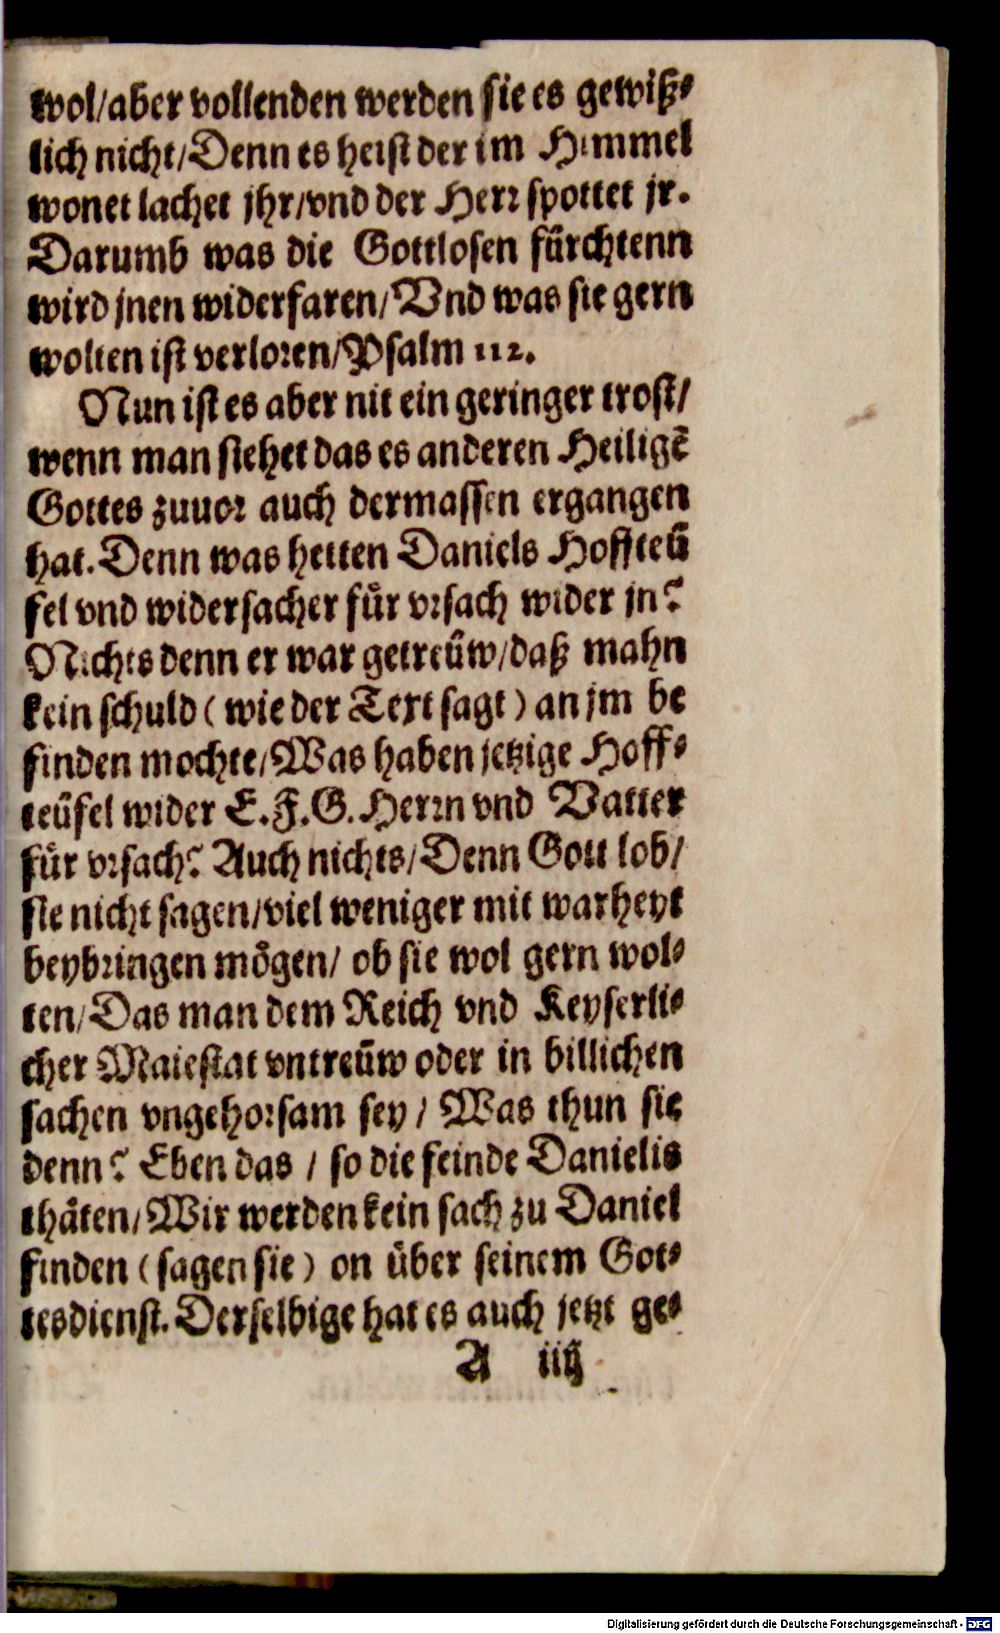 wol/aber vollenden werden sie es gewiß⸗
lich nicht/Denn es heist der im Himmel
wonet lachet jhr/vnd der Herr spottet jr.
Darumb was die Gottlosen fürchtenn
wird jnen widerfaren/Vnd was sie gern
wolten ist verloren/Psalm 112.
Nun ist es aber nit ein geringer trost/
wenn man siehet das es anderen Heiligē
Gottes zuuor auch dermassen ergangen
hat. Denn was hetten Daniels Hoffteü
fel vnd widersacher für vrsach wider jn?
Nichts denn er war getreüw/daß mahn
kein schuld (wie der Text sagt) an jm be
finden mochte/Was haben jetzige Hoff⸗
teüfel wider E.F.G. Herrn vnd Vatter
für vrsach? Auch nichts/Denn Gott lob/
sie nicht sagen/viel weniger mit warheyt
beybringen mögen/ ob sie wol gern wol⸗
ten/Das man dem Reich vnd Keyserli⸗
cher Maiestat vntreüw oder in billichen
sachen vngehorsam sey/ Was thun sie
denn? Eben das / so die feinde Danielis
thäten/Wir werden kein sach zu Daniel
finden (sagen sie) on über seinem Got⸗
tesdienst. Derselbige hat es auch jetzt ge⸗
A iiij
Digitalisierung gefördert durch die Deutsche Forschungsgemeinschaft - DFG